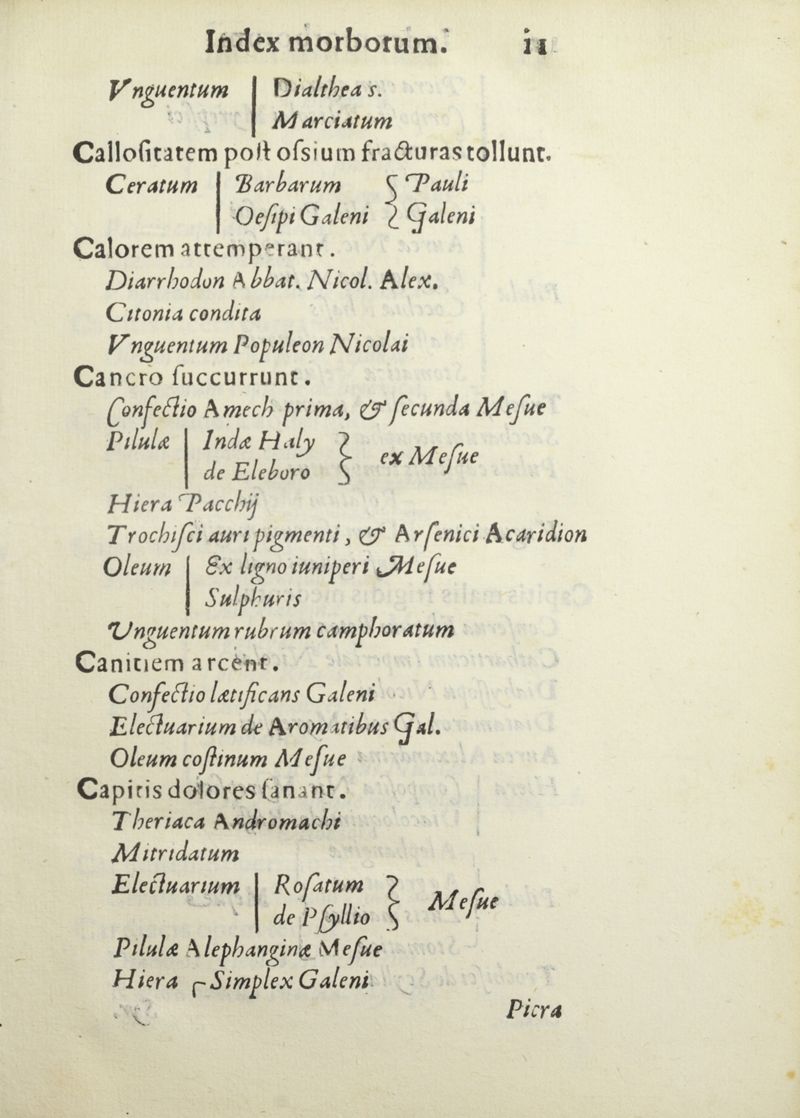 Index morborum. 11
Vnguentum | Dialthea s.
Marciatum
Callositatem post ossium fracturas tollunt.
Ceratum | Barbarum { Pauli
Oesipi Galeni { Galeni
Calorem attemperant.
Diarrhodon Abbat. Nicol. Alex.
Citonia condita
Vnguentum Populeon Nicolai
Cancro succurrunt.
Confectio Amech prima, & secunda Mesue
Pilulæ | Indæ Haly } ex Mesue
de Eleboro
Hiera Pacchij
Trochisci auripigmenti, & Arsenici Acaridion
Oleum | Ex ligno iuniperi Mesue
Sulphuris
Vnguentum rubrum camphoratum
Canitiem arcent.
Confectio lætificans Galeni
Electuarium de Aromatibus Gal.
Oleum costinum Mesue
Capitis dolores sanant.
Theriaca Andromachi
Mitridatum
Electuarium | Rosatum } Mesue
de Psyllio
Pilulæ Alephanginæ Mesue
Hiera { Simplex Galeni
Picra